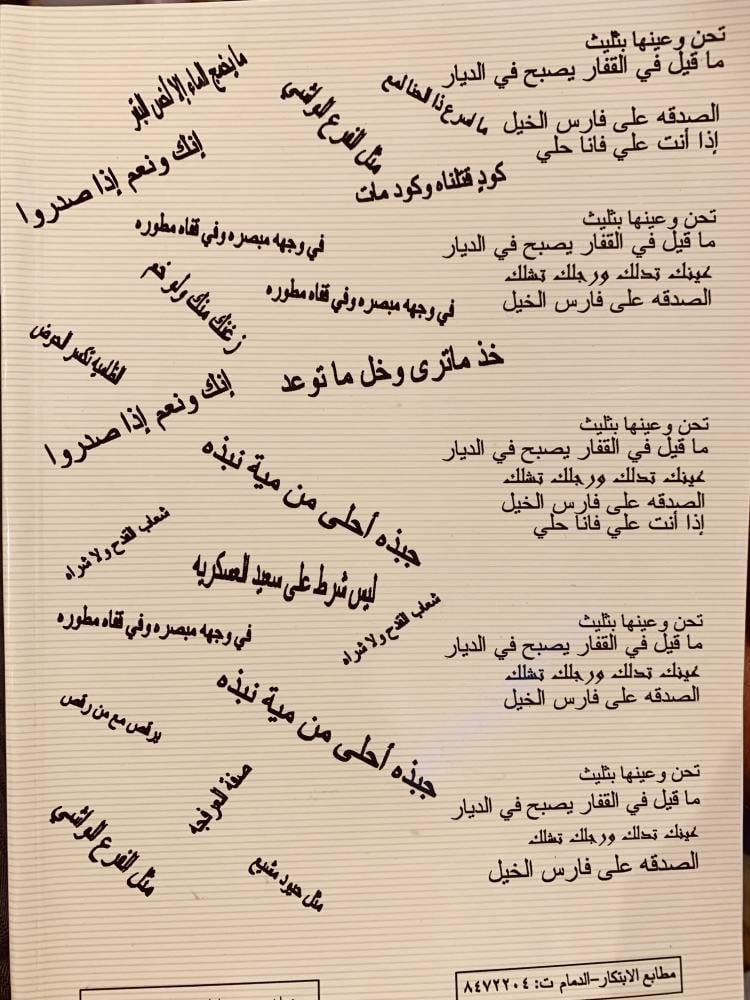 تحن وعينها بثليث
ما قيل في القفار يصبح في الديار
الصدقه على فارس الخيل
إذا أنت علي فانا حلي
ما يضيع الماء إلا
مثل القرع الواشي
ما اسرع ذا الخنا لمع
إنك ونعم إذا صدروا
كودٍ قتلناه وكود مات
في وجهه مبصره وفي قفاه مطوره
تحن وعينها بثليث
ما قيل في القفار يصبح في الديار
عينك تدلك ورجلك تشلك
الصدقه على فارس الخيل
زغنك منك ولو خم
في وجهه مبصره وفي قفاه مطوره
تكسر الحوض
خذ ماترى وخل ما توعد
إنك ونعم إذا صدروا
تحن وعينها بثليث
ما قيل في القفار يصبح في الديار
عينك تدلك ورجلك تشلك
الصدقه على فارس الخيل
إذا أنت علي فانا حلي
جبذه أحلى من مية نبذه
شعاب القدح ولا شراه
ليس شرط على سعيد العسكريه
شعاب القدح ولا شراه
في وجهه مبصره وفي قفاه مطوره
تحن وعينها بثليث
ما قيل في القفار يصبح في الديار
عينك تدلك ورجلك تشلك
الصدقه على فارس الخيل
جبذه أحلى من مية نبذه
يرقص مع من رقص
صفة العرفجه
مثل القرع الواشي
مثل حيود مشيع
تحن وعينها بثليث
ما قيل في القفار يصبح في الديار
عينك تدلك ورجلك تشلك
الصدقه على فارس الخيل
مطابع الابتكار-الدمام ت: ٨٤٧٢٢٠٤